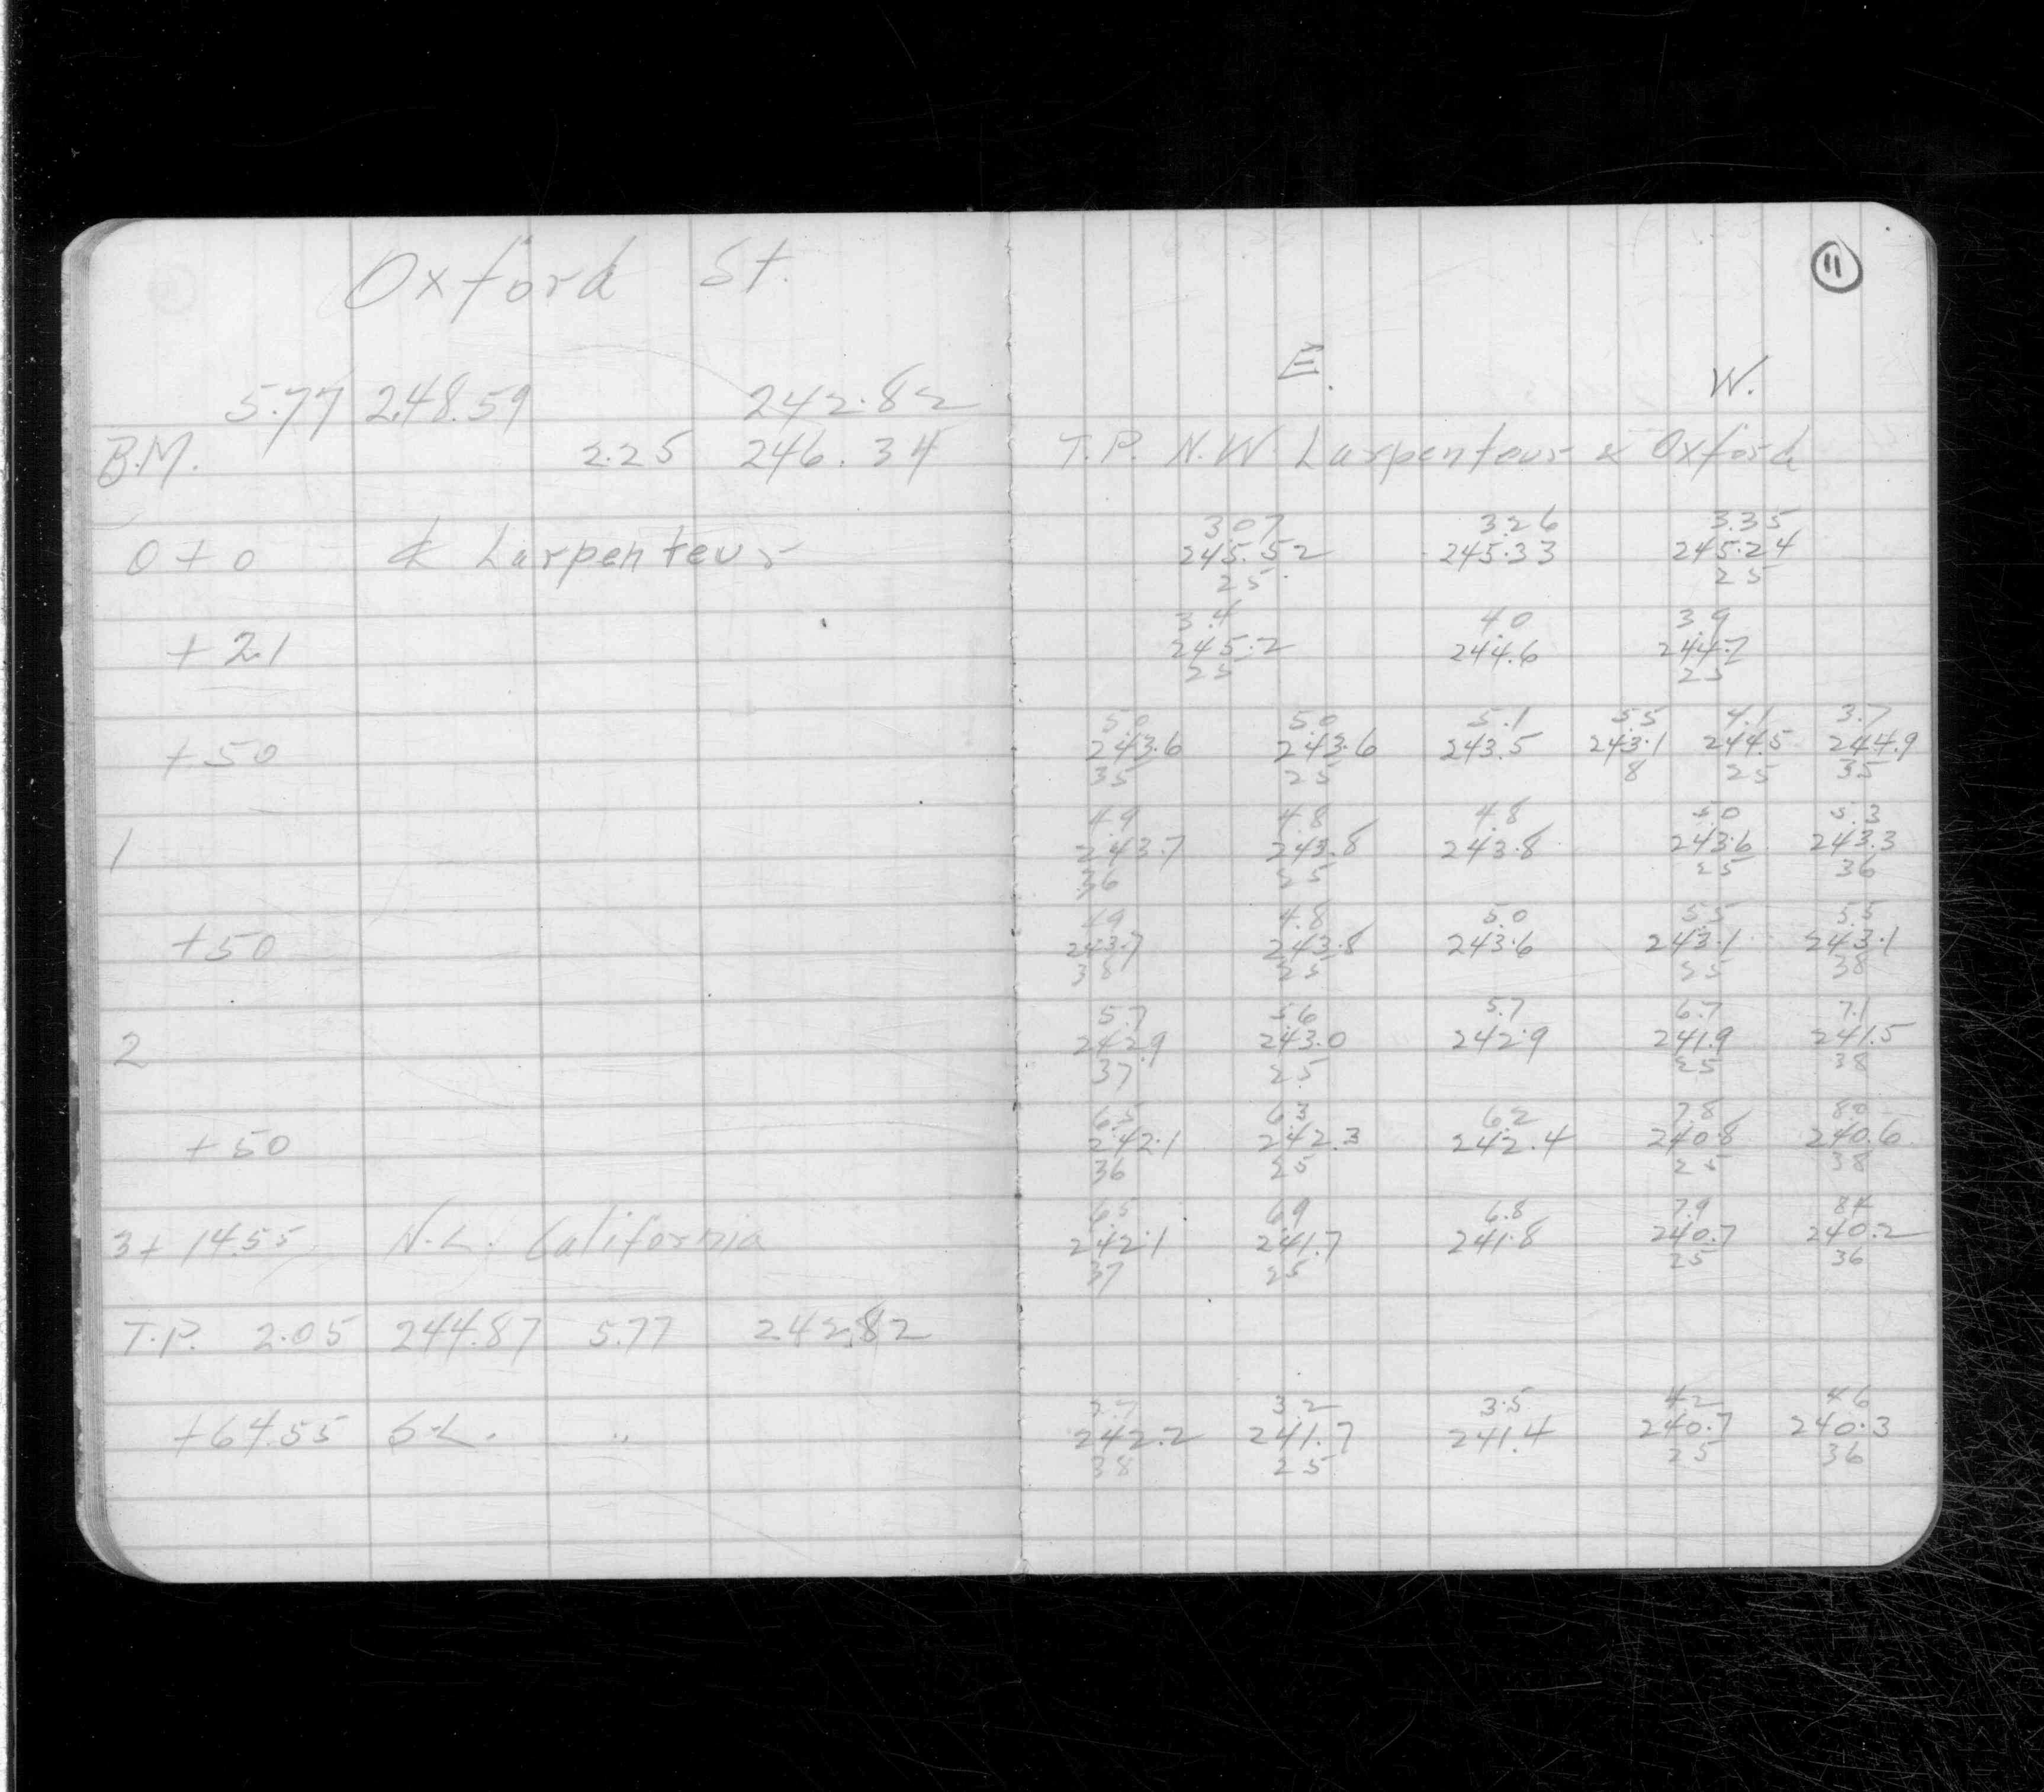 11
Oxford St.
E. W.
5.77 248.59 242.82
B.M. 2.25 246.34 T.P. N.W. Larpenteur & Oxford
3.07 3.26 3.35
0+0 ℄ Larpenteur 245.52 245.33 245.24
25 25
3.4 4.0 3.9
+21 245.2 244.6 244.7
25 25
5.0 5.0 5.1 5.5 4.1 3.7
+50 243.6 243.6 243.5 243.1 244.5 244.9
35 25 8 25 35
4.9 4.8 4.8 5.0 5.3
1 243.7 243.8 243.8 243.6 243.3
36 25 25 36
4.9 4.8 5.0 5.5 5.5
+50 243.7 243.8 243.6 243.1 243.1
38 25 25 38
5.7 5.6 5.7 6.7 7.1
2 242.9 243.0 242.9 241.9 241.5
37 25 25 38
6.5 6.3 6.2 7.8 8.0
+50 242.1 242.3 242.4 240.8 240.6
36 25 25 38
6.5 6.9 6.8 7.9 8.4
3+14.55 N.L. California 242.1 241.7 241.8 240.7 240.2
37 25 25 36
T.P. 2.05 244.87 5.77 242.82
2.7 3.2 3.5 4.2 4.6
+64.55 S.L. " 242.2 241.7 241.4 240.7 240.3
38 25 25 36